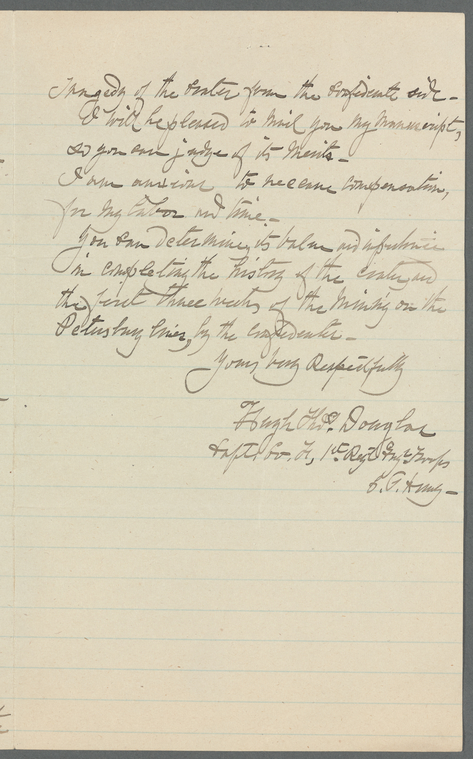 Tragedy of the Crater from the Confederate side—
I will be pleased to mail you my Manuscript,
so you can judge of its merits—
I am anxious to receive compensation,
for my labor and time—
You can determine its value and importance
in completing the history of the crater, and
the first three weeks of the Mining on the
Petersburg lines, by the Confederates—
Yours very Respectfully
Hugh Thos. Douglas
Capt. Co. F, 1st Regt Engr Troops
C. S. Army—